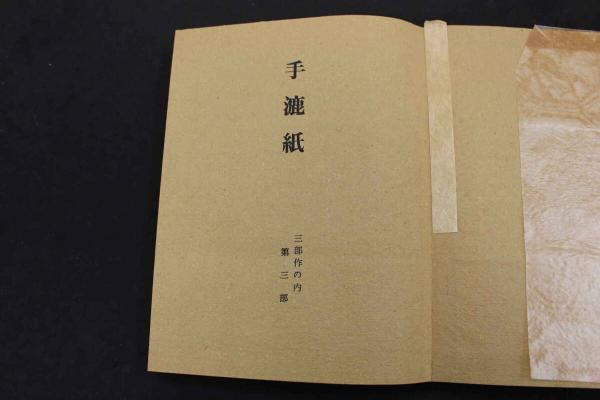 手漉紙
三部作の内
第三部